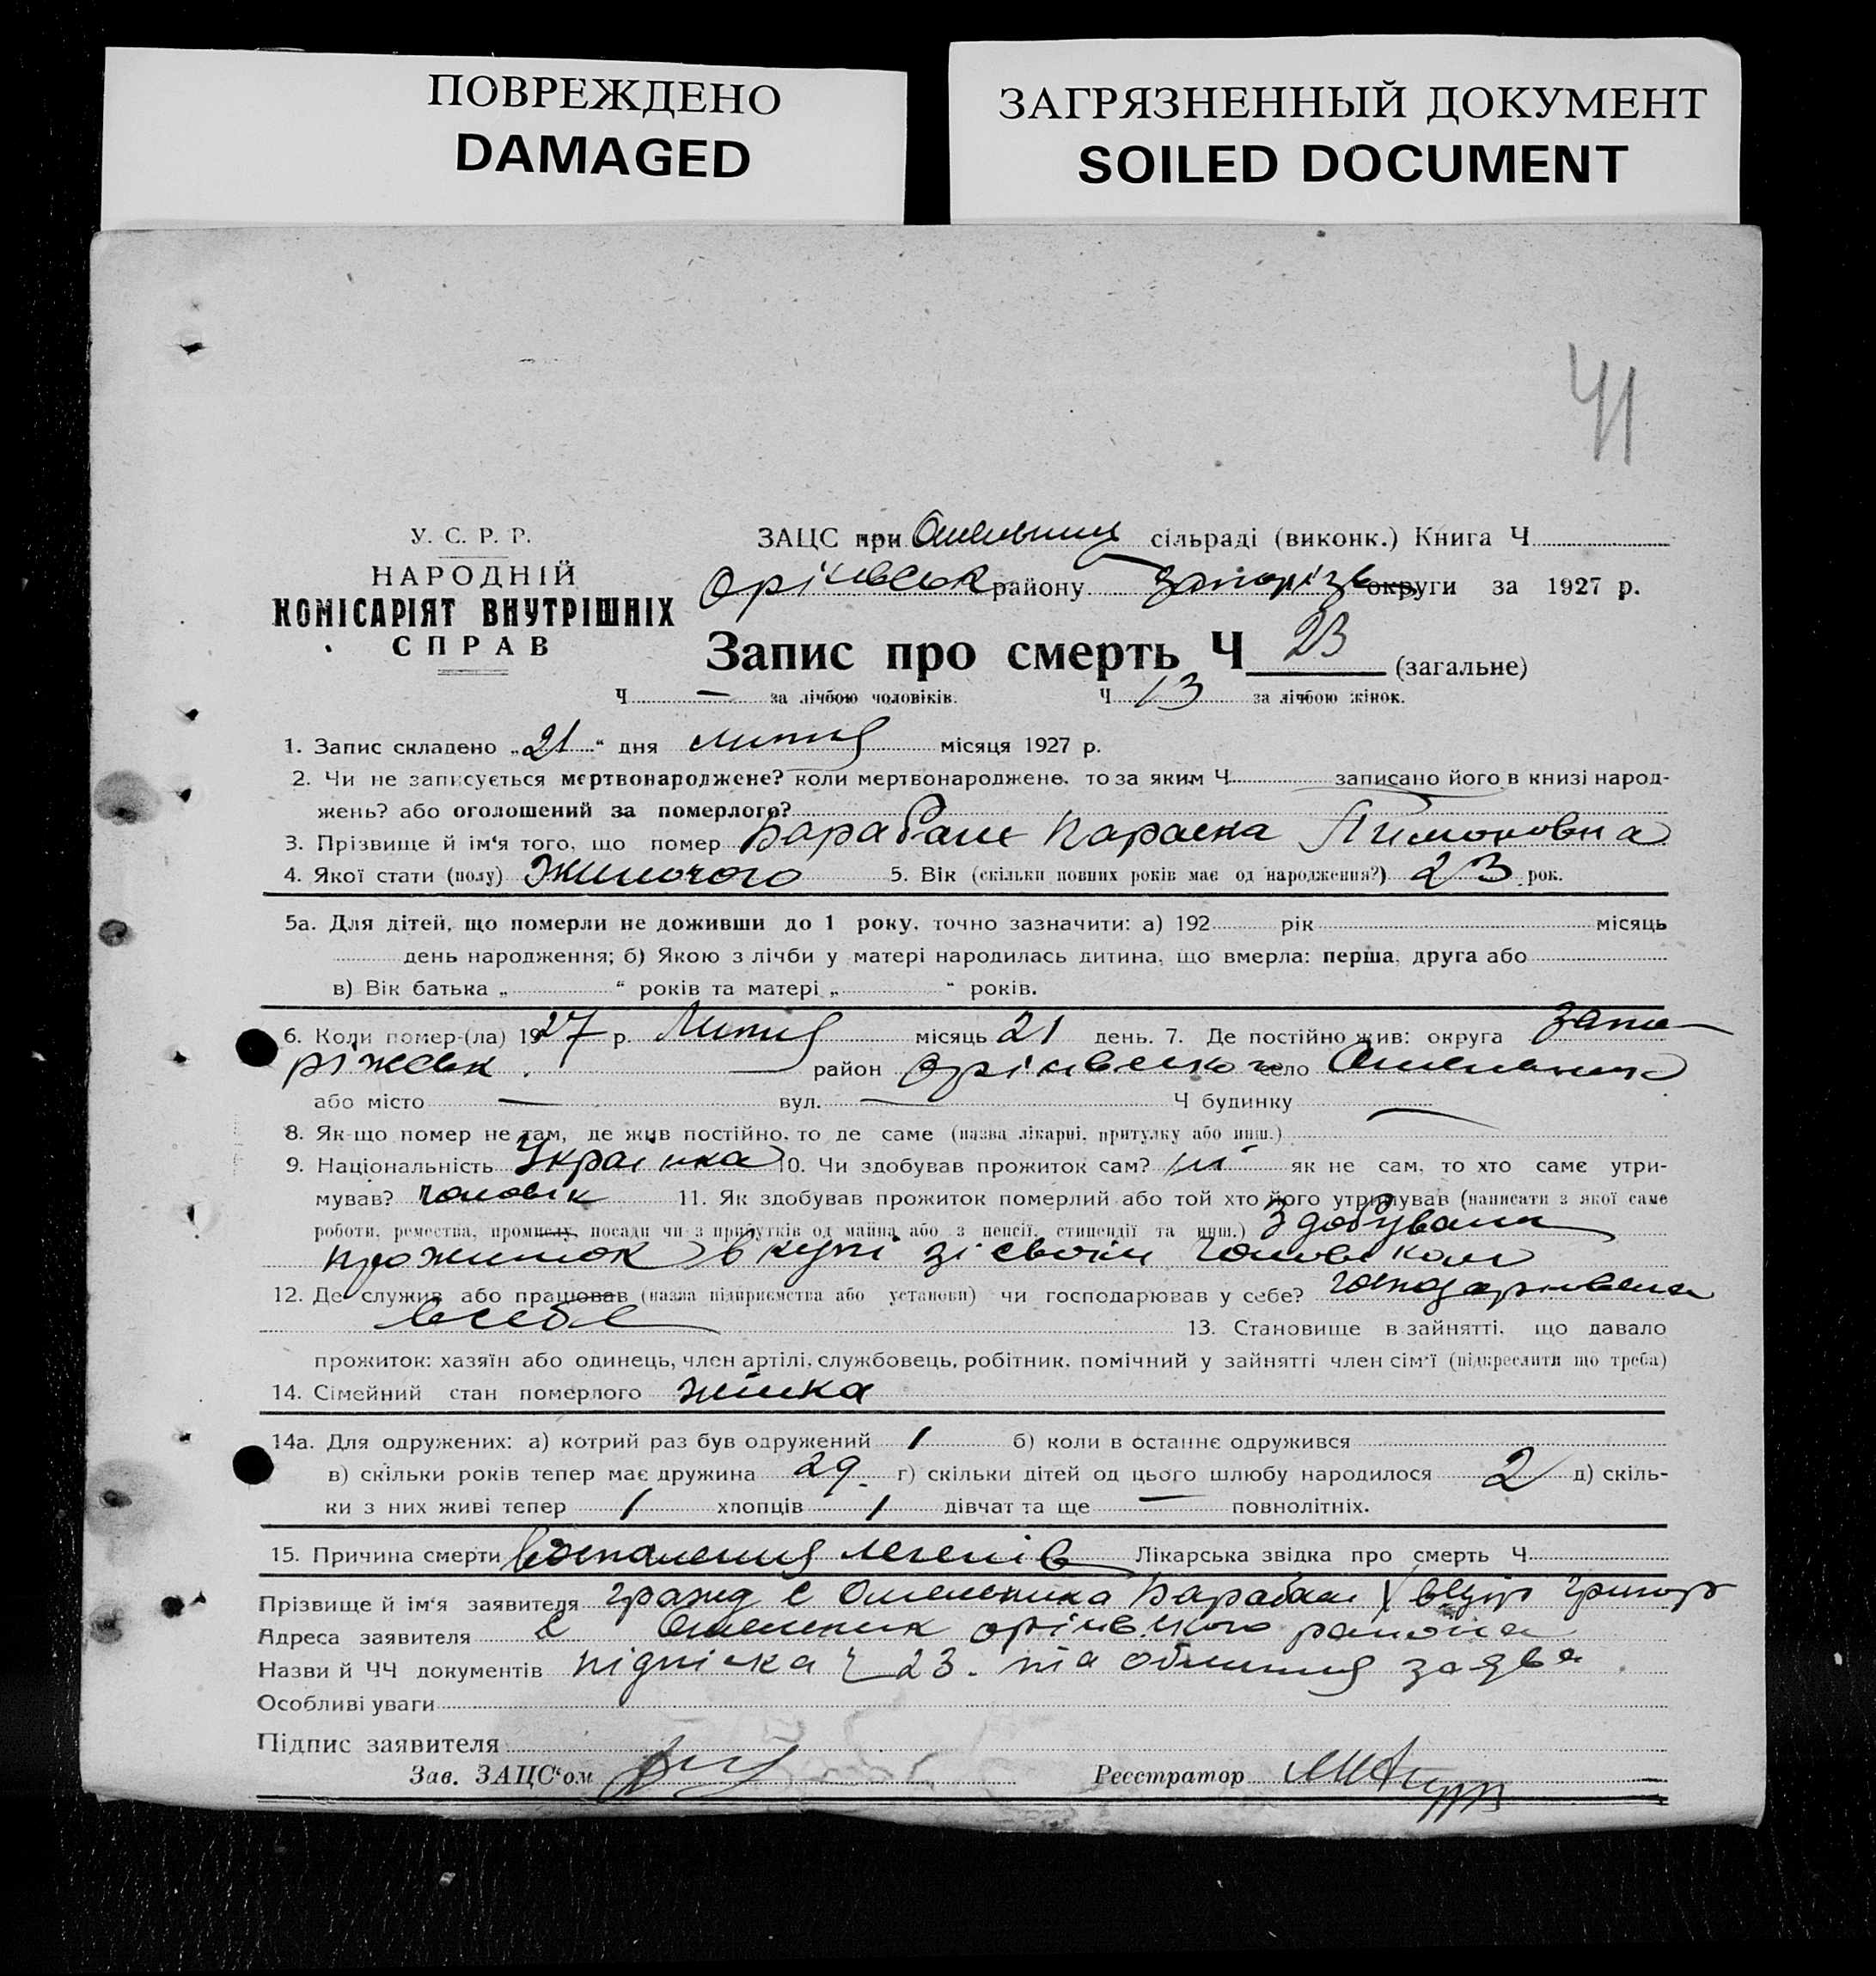 ПОВРЕЖДЕНО
DAMAGED
ЗАГРЯЗНЕННЫЙ ДОКУМЕНТ
SOILED DOCUMENT
41
У. С. Р. Р.
НАРОДНІЙ
КОМІСАРІЯТ ВНУТРІШНІХ
СПРАВ
ЗАЦС при сільраді (виконк.) Книга Ч
Орінівськ району Запоріз округи за 1927 р.
Запис про смерть Ч 23 (загальне)
Ч — за лічбою чоловіків. Ч 13 за лічбою жінок.
1. Запис складено „21“ дня липня місяця 1927 р.
2. Чи не записується мертвонароджене? коли мертвонароджене, то за яким Ч записано його в книзі народ-
жень? або оголошений за померлого?
3. Прізвище й ім‘я того, що помер Барабаш Параска Тимоховна
4. Якої стати (полу) Жиночого 5. Вік (скільки повних років має од народження?) 23 рок.
5а. Для дітей, що померли не доживши до 1 року, точно зазначити: а) 192 рік місяць
день народження; б) Якою з лічби у матері народилась дитина, що вмерла: перша, друга або
в) Вік батька „ “ років та матері „ “ років.
6. Коли помер-(ла) 1927 р. Липня місяць 21 день. 7. Де постійно жив: округа Запо
ріжськ. район орінівського село Омельник
або місто — вул. — Ч будинку —
8. Як-що помер не там, де жив постійно, то де саме (назва лікарні, притулку або инш.)
9. Національність Украінка 10. Чи здобував прожиток сам? ні як не сам, то хто саме утри-
мував? чоловік 11. Як здобував прожиток померлий або той хто його утримував (написати з якої саме
роботи, ремества, промислу, посади чи з прибутків од майна або з пенсії, стипендії та инш.) Здобувала
прожиток вкупі зі своім чоловіком
12. Де служив або працював (назва підприємства або установи) чи господарював у себе? господарювала
всебе 13. Становище в зайнятті, що давало
прожиток: хазяїн або одинець, член артілі, службовець, робітник, помічний у зайнятті член сім‘ї (підкреслити що треба)
14. Сімейний стан померлого жінка
14а. Для одружених: а) котрий раз був одружений 1 б) коли в останнє одружився
в) скільки років тепер має дружина 29. г) скільки дітей од цього шлюбу народилося 2 д) скіль-
ки з них живі тепер 1 хлопців 1 дівчат та ще — повнолітніх.
15. Причина смерти легенів Лікарська звідка про смерть Ч
Прізвище й ім‘я заявителя гражд с Омельника Барабаш
Адреса заявителя с Омельник орінівського района
Назви й ЧЧ документів підписка Ч 23. та заява
Особливі уваги
Підпис заявителя
Зав. ЗАЦС‘ом
Реєстратор